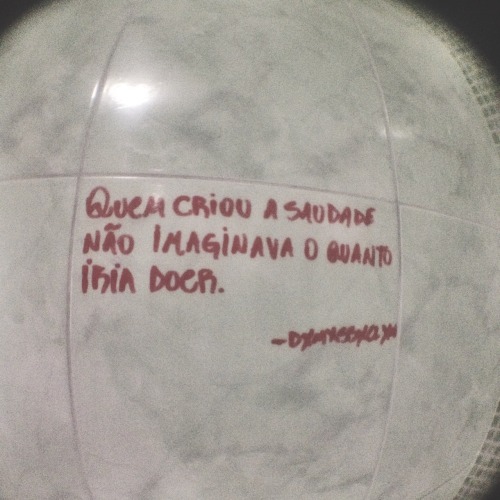 Quem criou a saudade
não imaginava o quanto
iria doer.